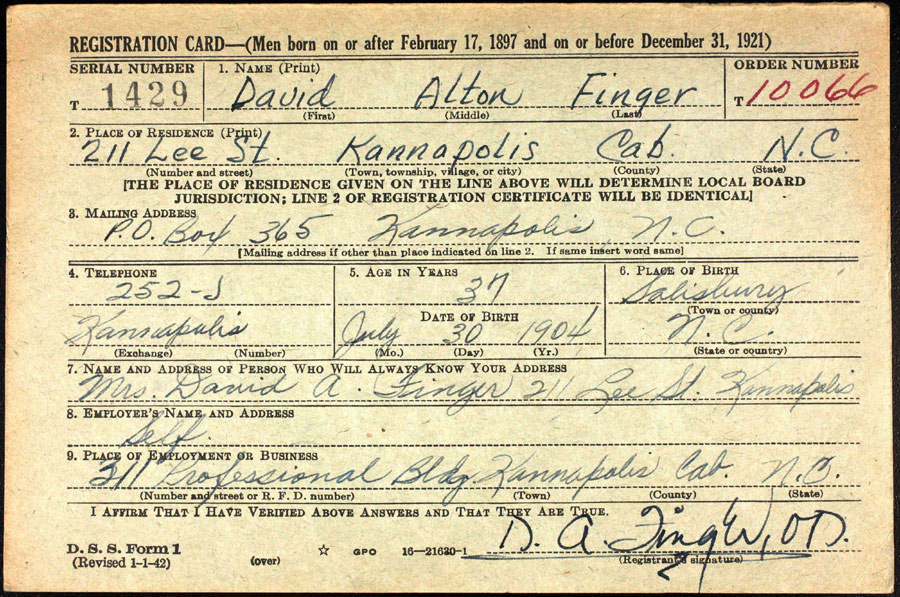 REGISTRATION CARD—(Men born on or after February 17, 1897 and on or before December 31, 1921)
SERIAL NUMBER 1. NAME (Print) ORDER NUMBER
T 1429 David Alton Finger T 10066
(First) (Middle) (Last)
2. PLACE OF RESIDENCE (Print)
211 Lee St. Kannapolis Cab. N.C.
(Number and street) (Town, township, village, or city) (County) (State)
[THE PLACE OF RESIDENCE GIVEN ON THE LINE ABOVE WILL DETERMINE LOCAL BOARD
JURISDICTION; LINE 2 OF REGISTRATION CERTIFICATE WILL BE IDENTICAL]
3. MAILING ADDRESS
P.O. Box 365 Kannapolis N.C.
[Mailing address if other than place indicated on line 2. If same insert word same]
4. TELEPHONE 5. AGE IN YEARS 6. PLACE OF BIRTH
252-J 37 Salisbury
DATE OF BIRTH (Town or county)
Kannapolis July 30 1904 N.C.
(Exchange) (Number) (Mo.) (Day) (Yr.) (State or country)
7. NAME AND ADDRESS OF PERSON WHO WILL ALWAYS KNOW YOUR ADDRESS
Mrs. David A. Finger 211 Lee St. Kannapolis
8. EMPLOYER'S NAME AND ADDRESS
Self.
9. PLACE OF EMPLOYMENT OR BUSINESS
311 Professional Bldg. Kannapolis Cab. N.C.
(Number and street or R. F. D. number) (Town) (County) (State)
I AFFIRM THAT I HAVE VERIFIED ABOVE ANSWERS AND THAT THEY ARE TRUE.
D. A. Finger, OD.
D. S. S. Form 1 (Registrant's signature)
(Revised 1-1-42) (over) ☆ GPO 16—21630-1